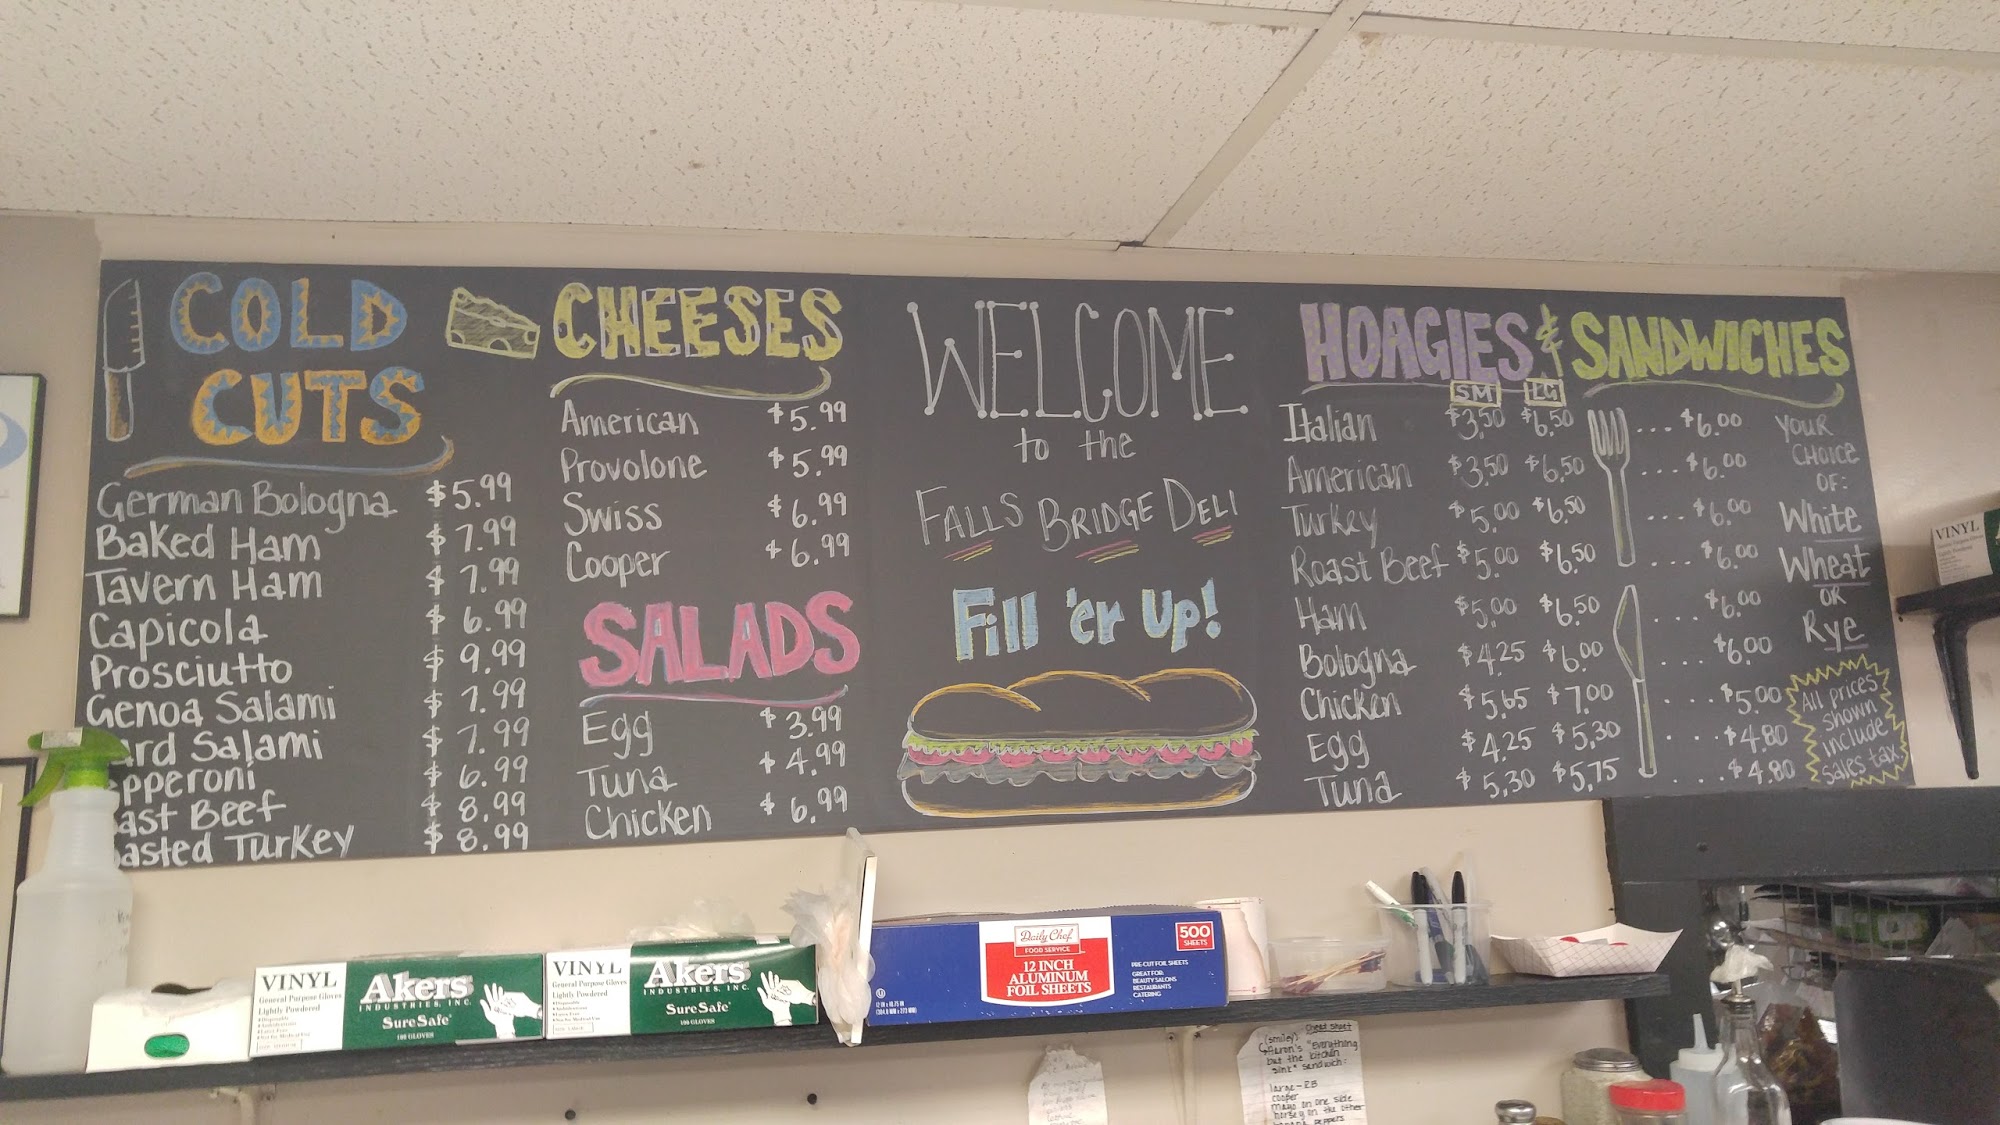 COLD
CUTS
German Bologna $5.99
Baked Ham $7.99
Tavern Ham $7.99
Capicola $6.99
Prosciutto $9.99
Genoa Salami $7.99
ard Salami $7.99
pperoni $6.99
ast Beef $8.99
asted Turkey $8.99
CHEESES
American $5.99
Provolone $5.99
Swiss $6.99
Cooper $6.99
SALADS
Egg $3.99
Tuna $4.99
Chicken $6.99
WELCOME
to the
FALLS BRIDGE DELI
Fill 'er Up!
HOAGIES & SANDWICHES
SM LG
Italian $3.50 $6.50 ... $6.00
American $3.50 $6.50 ... $6.00
Turkey $5.00 $6.50 ... $6.00
Roast Beef $5.00 $6.50 ... $6.00
Ham $5.00 $6.50 ... $6.00
Bologna $4.25 $6.00 ... $6.00
Chicken $5.65 $7.00 ... $5.00
Egg $4.25 $5.30 ... $4.80
Tuna $5.30 $5.75 ... $4.80
YOUR
CHOICE
OF:
White
Wheat
OR
Rye
All prices
shown
include
sales tax.
VINYL
General Purpose Gloves
Lightly Powdered
Akers
INDUSTRIES, INC.
SureSafe
100 GLOVES
VINYL
General Purpose Gloves
Lightly Powdered
Akers
INDUSTRIES, INC.
SureSafe
100 GLOVES
Daily Chef
FOOD SERVICE
12 INCH
ALUMINUM
FOIL SHEETS
500
SHEETS
PRE-CUT FOIL SHEETS
GREAT FOR:
BEAUTY SALONS
RESTAURANTS
CATERING
VINYL
Cheat sheet
(smiley)
Aaron's "everything
but the kitchen
sink" sandwich:
large - RB
cooper
mayo on one side
horsey on the other
peppers